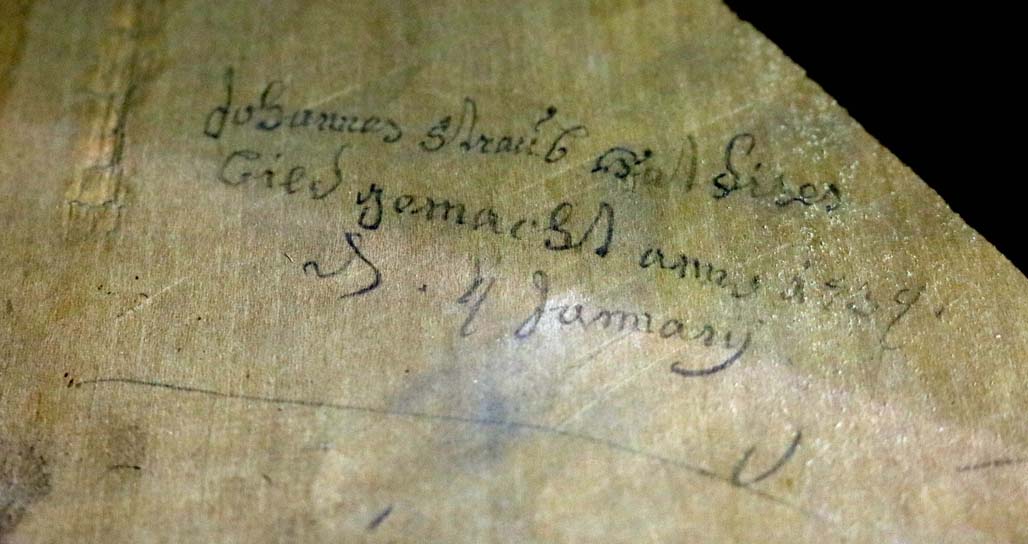 Johannes straub hat dises
lied gemacht anno 1739.
d. 4 Januarij